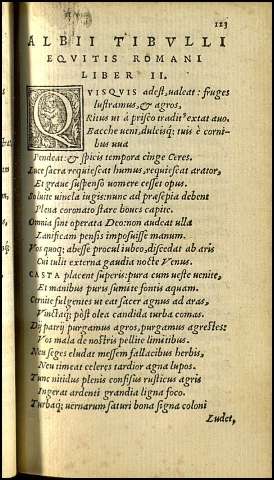 123
ALBII TIBVLLI
EQVITIS ROMANI
LIBER II.
QVISQVIS adest, ualeat: fruges
lustramus, & agros,
Ritus ut à prisco traditus extat auo.
Bacche ueni, dulcisq; tuis è corni-
bus uua
Pendeat: & spicis tempora cinge Ceres.
Luce sacra requiescat humus, requiescat arator,
Et graue suspenso uomere cesset opus.
Soluite uincla iugis: nunc ad præsepia debent
Plena coronato stare boues capite.
Omnia sint operata Deo: non audeat ulla
Lanificam pensis imposuisse manum.
Vos quoq; abesse procul iubeo, discedat ab aris
Cui tulit externa gaudia nocte Venus.
CASTA placent superis: pura cum ueste uenite,
Et manibus puris sumite fontis aquam.
Cernite fulgentes ut eat sacer agnus ad aras,
Vinctaq; pòst olea candida turba comas.
Dij patrij purgamus agros, purgamus agrestes:
Vos mala de nostris pellite limitibus.
Neu seges eludat messem fallacibus herbis,
Neu timeat celeres tardior agna lupos.
Tunc nitidus plenis confisus rusticus agris
Ingerat ardenti grandia ligna foco.
Turbaq; uernarum saturi bona signa coloni
Ludet,